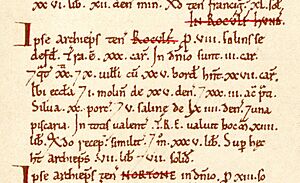 xx vi. lib. 7 xii. den min. Xð ten francig xl. sol.
IN ROCULF HUND.
Ipse archieps ten ROCULF. p. viii. solins se
defd. Tra. ē. xxx. car. In dnio sunt. iii. car.
7 qt xx. 7 x. uilli cū xx v. bord hnt xx vii. car.
Ibi eccla 7 i. molin de xx v. den. 7 xxx. iii. ac pra.
Silua. xx. porc. 7 v. saline de lx iiii. den. 7 una
piscaria. In totis ualent T.R.E. ualuit hoc m xiiii.
lib. Xdo recep. similit. 7 m. xxx v. lib. Sup hec
ht archieps vii. lib 7 vii. solid.
Ipse archieps ten NORTONE in dnio. p. xiii. so